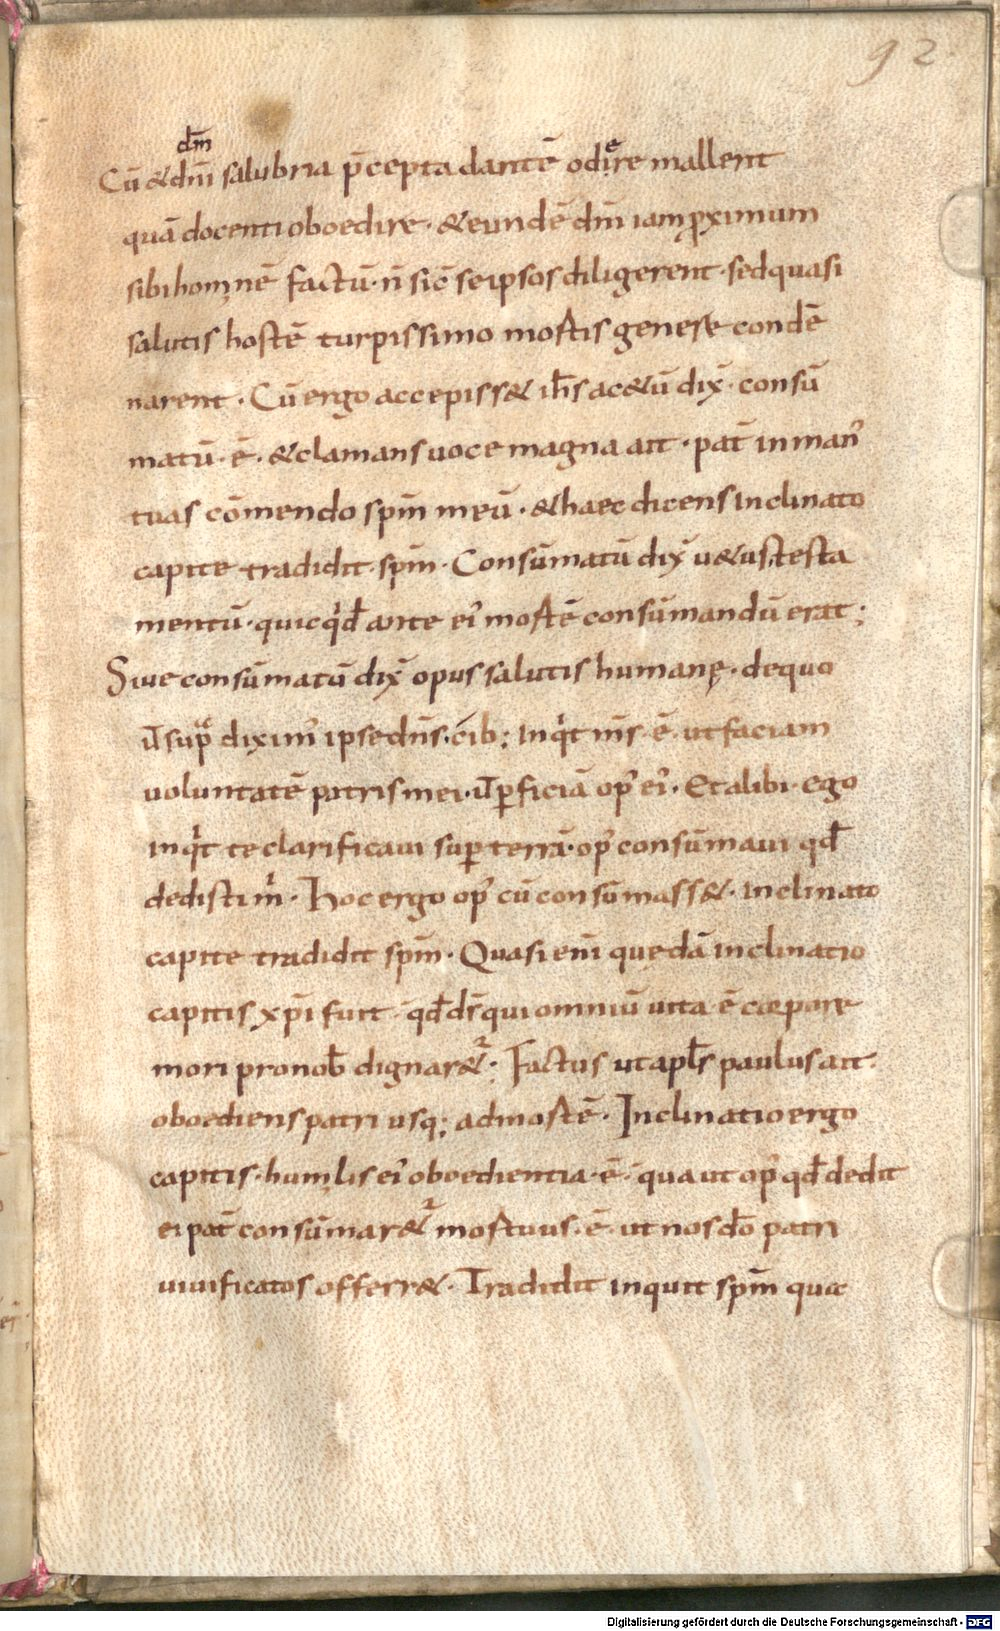 92
dm̄
Cū & dm̄ salubria p̄cepta dantē odire mallent
quā docenti oboedire · & eundē dm̄ iam ꝓximum
sibi hominē factū · n̄ sic̄ se ipsos diligerent · sed quasi
salutis hostē turpissimo mortis genere condē
narent · Cū ergo accepiss& ih̄s ac&ū dix̄ · consū
matū · ē · & clamans uoce magna ait · pat̄ in man᾽
tuas cōmendo sp̄m meū · & haec dicens inclinato
capite tradidit sp̄m · Consūmatū dix̄ u&us testa
mentū · quicqͥd ante ei᾽ mortē consūmandū erat ;
Siue consūmatū dix̄ opus salutis humanę · de quo
ut̄ supͣ dixim᾽ ipse dn̄s · cib; inqͥt m̄s · ē · ut faciam
uoluntatē patris mei · ut̄ ꝑficiā op᾽ ei᾽ · Et alibi · ego
inqͥt te clarificaui suꝑ terrā · op᾽ consūmaui qd̄
dedisti mͥ · Hoc ergo op᾽ cū consūmass& · inclinato
capite tradidit sp̄m · Quasi eni᷒ quędā inclinatio
capitis xp̄i fuit · qd̄ dr̄ qui omniū uita · ē corpore
mori pro nob̄ dignar&ᷣ · Factus ut apl̄s paulus ait ·
oboediens patri usq; ad mortē · Inclinatio ergo
capitis · humilis ei᾽ oboedientia · ē · qua ut op᾽ qd̄ dedit
ei pat̄ consūmar&ᷣ mortuus · ē · ut nos do̅ patri
uiuificatos offerr& · Tradidit inquit sp̄m quię
Digitalisierung gefördert durch die Deutsche Forschungsgemeinschaft - DFG